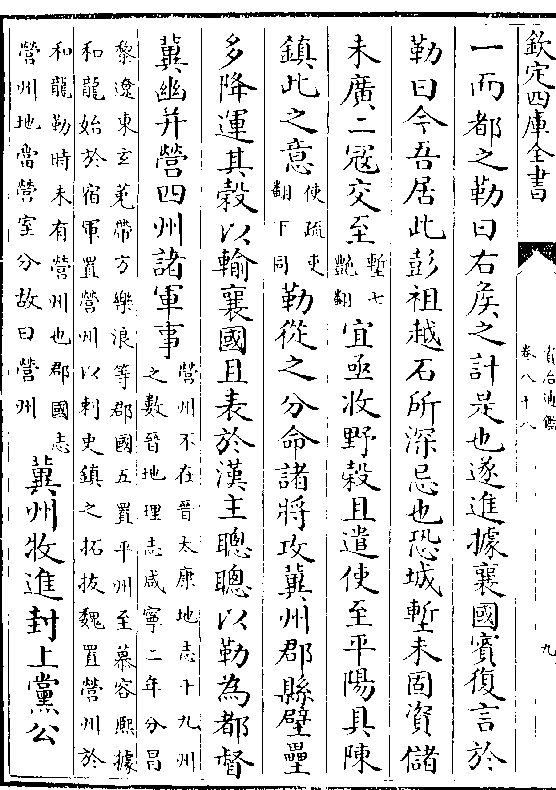 欽定四庫全書
資治通鑑
卷八十八
九
一而都之勒曰右侯之計是也遂進據襄國賓復言於
勒曰今吾居此彭祖越石所深忌也恐城塹未固資儲
未廣二冦交至塹七
艷翻宜亟收野穀且遣使至平陽具陳
鎮此之意使疏吏
翻下同勒從之分命諸將攻冀州郡縣壁壘
多降運其穀以輸襄國且表於漢主聰聰以勒為都督
冀幽并營四州諸軍事營州不在晉太康地志十九州
之數晉地理志咸寧二年分昌
黎遼東玄菟帶方樂浪等郡國五置平州至慕容熙據
和龍始於宿軍置營州以刺史鎮之拓拔魏置營州於
和龍勒時未有營州也郡國志
營州地當營室分故曰營州冀州牧進封上黨公